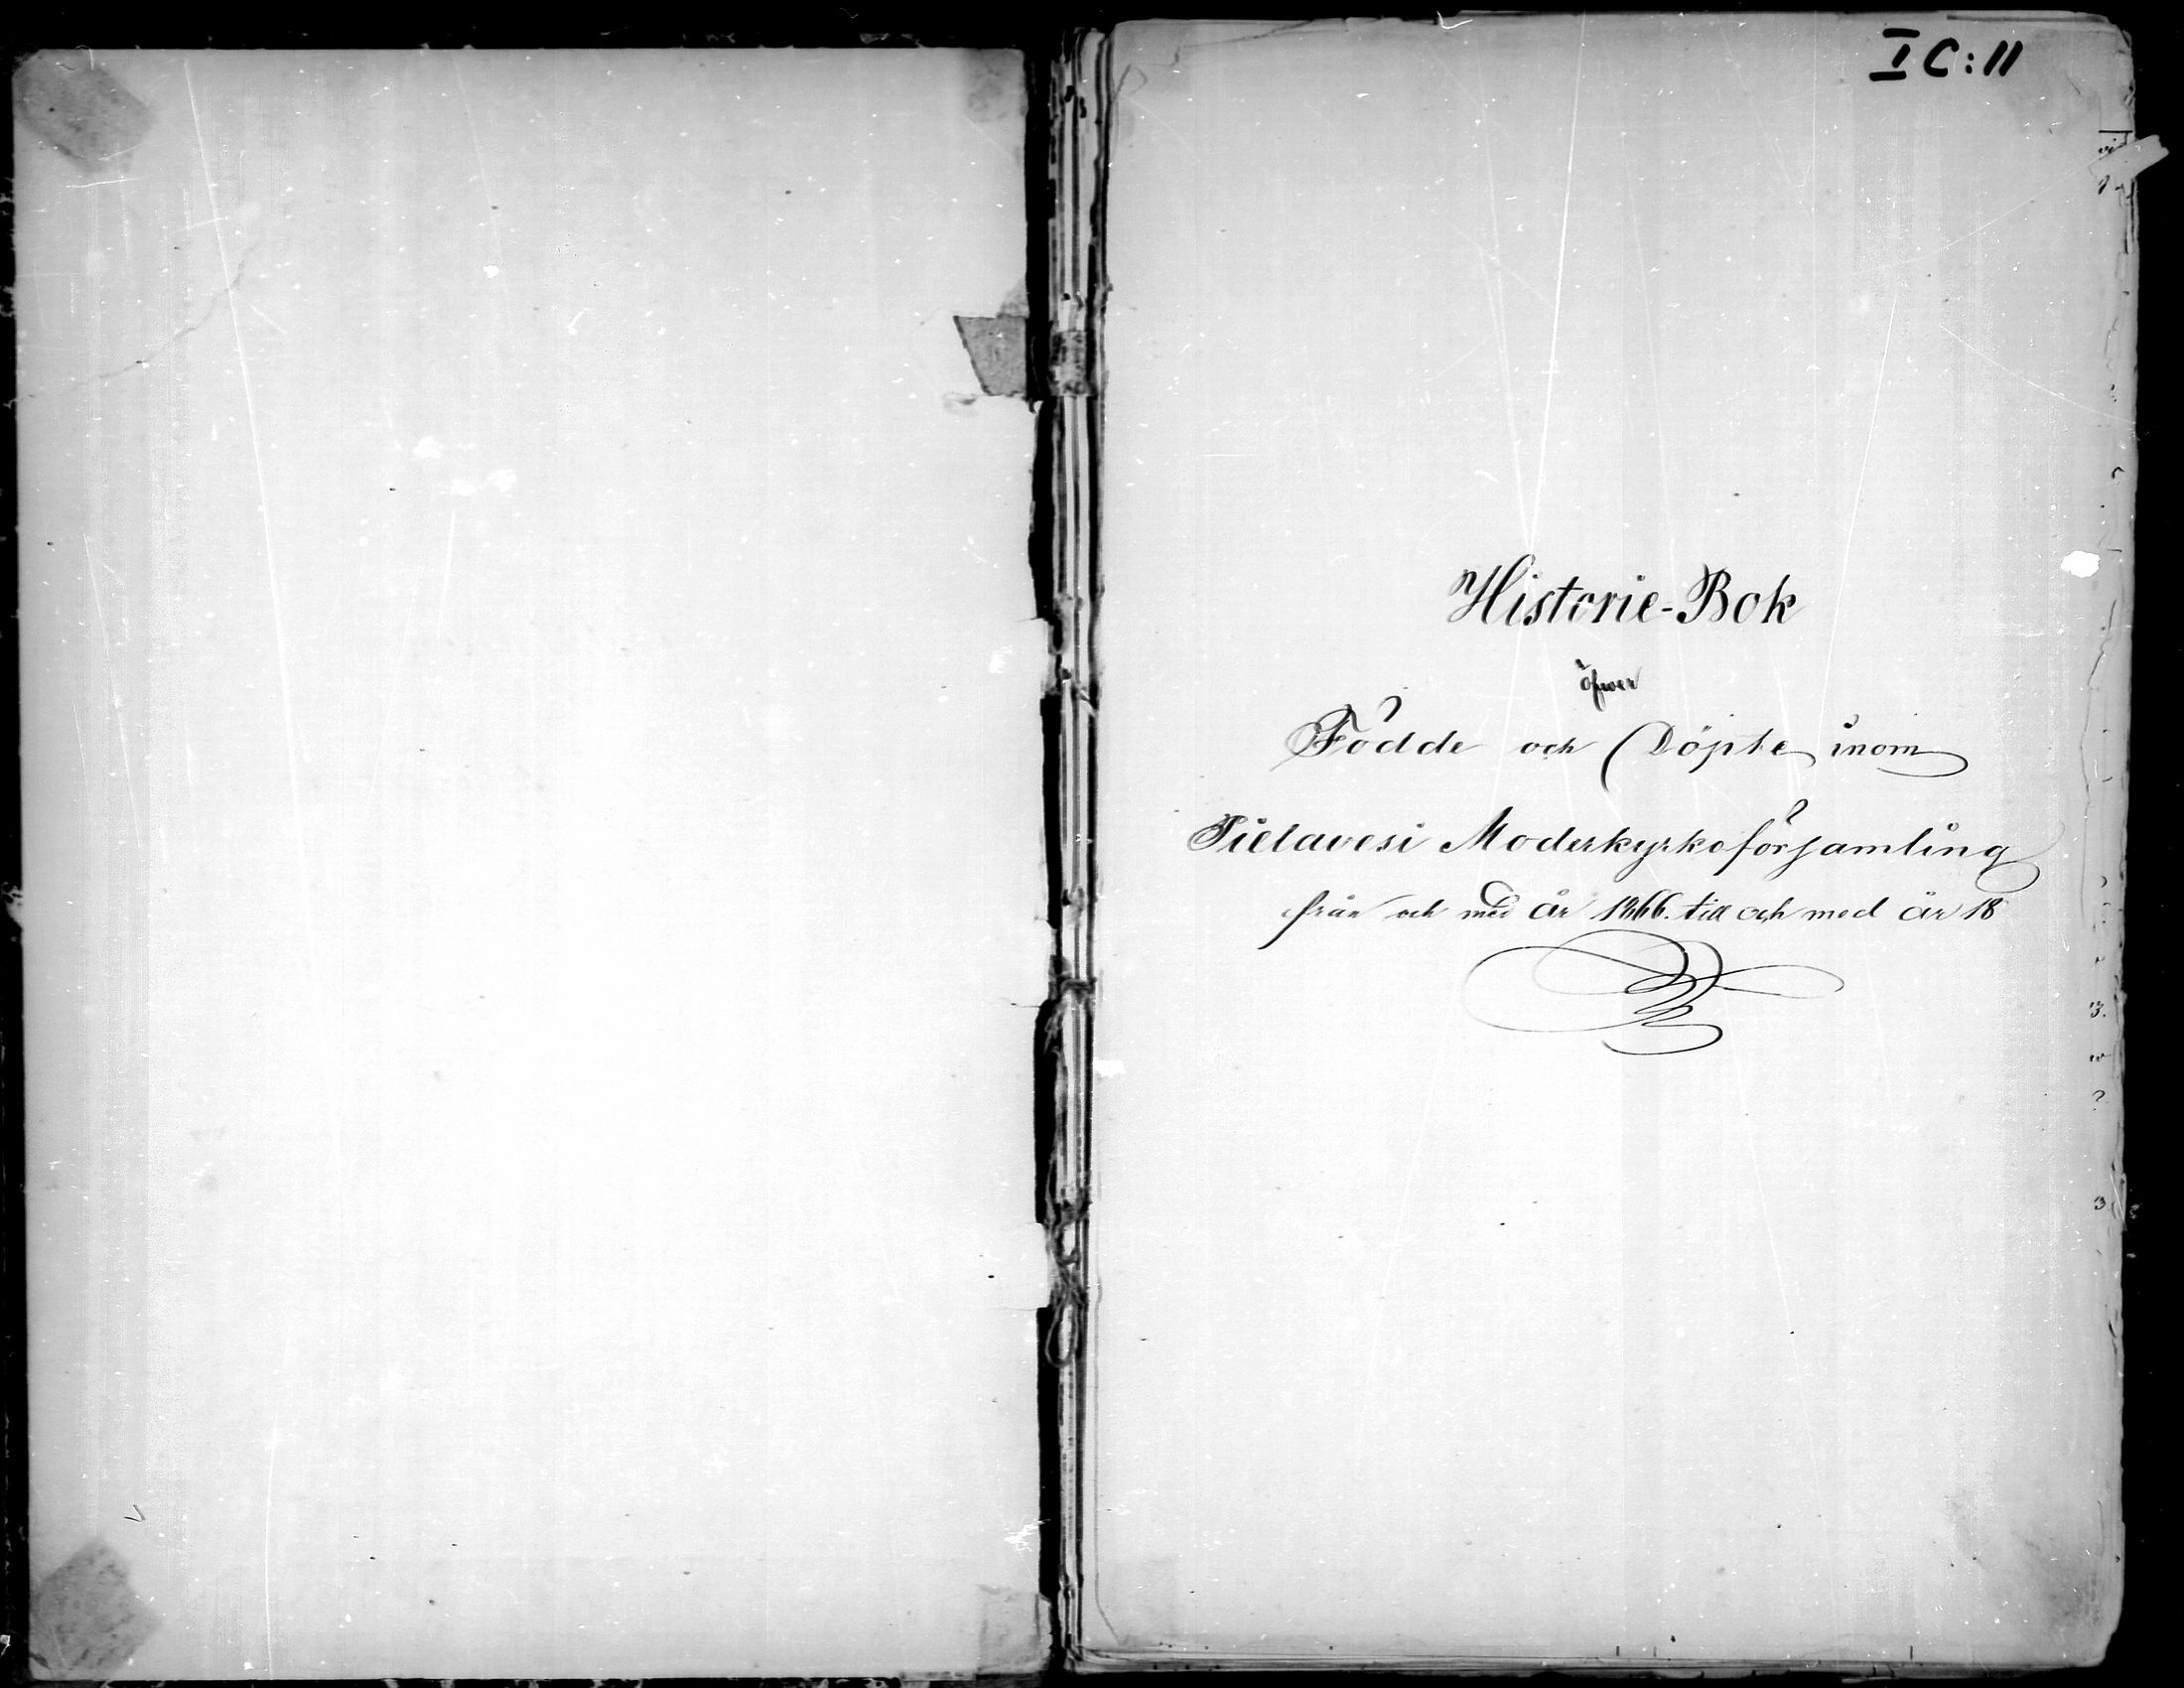 I C:11
Historie-Bok
öfwer
Födde och Döpte inom
Pielavesi Moderkyrkoförsamling
från och med år 1866. till och med år 18